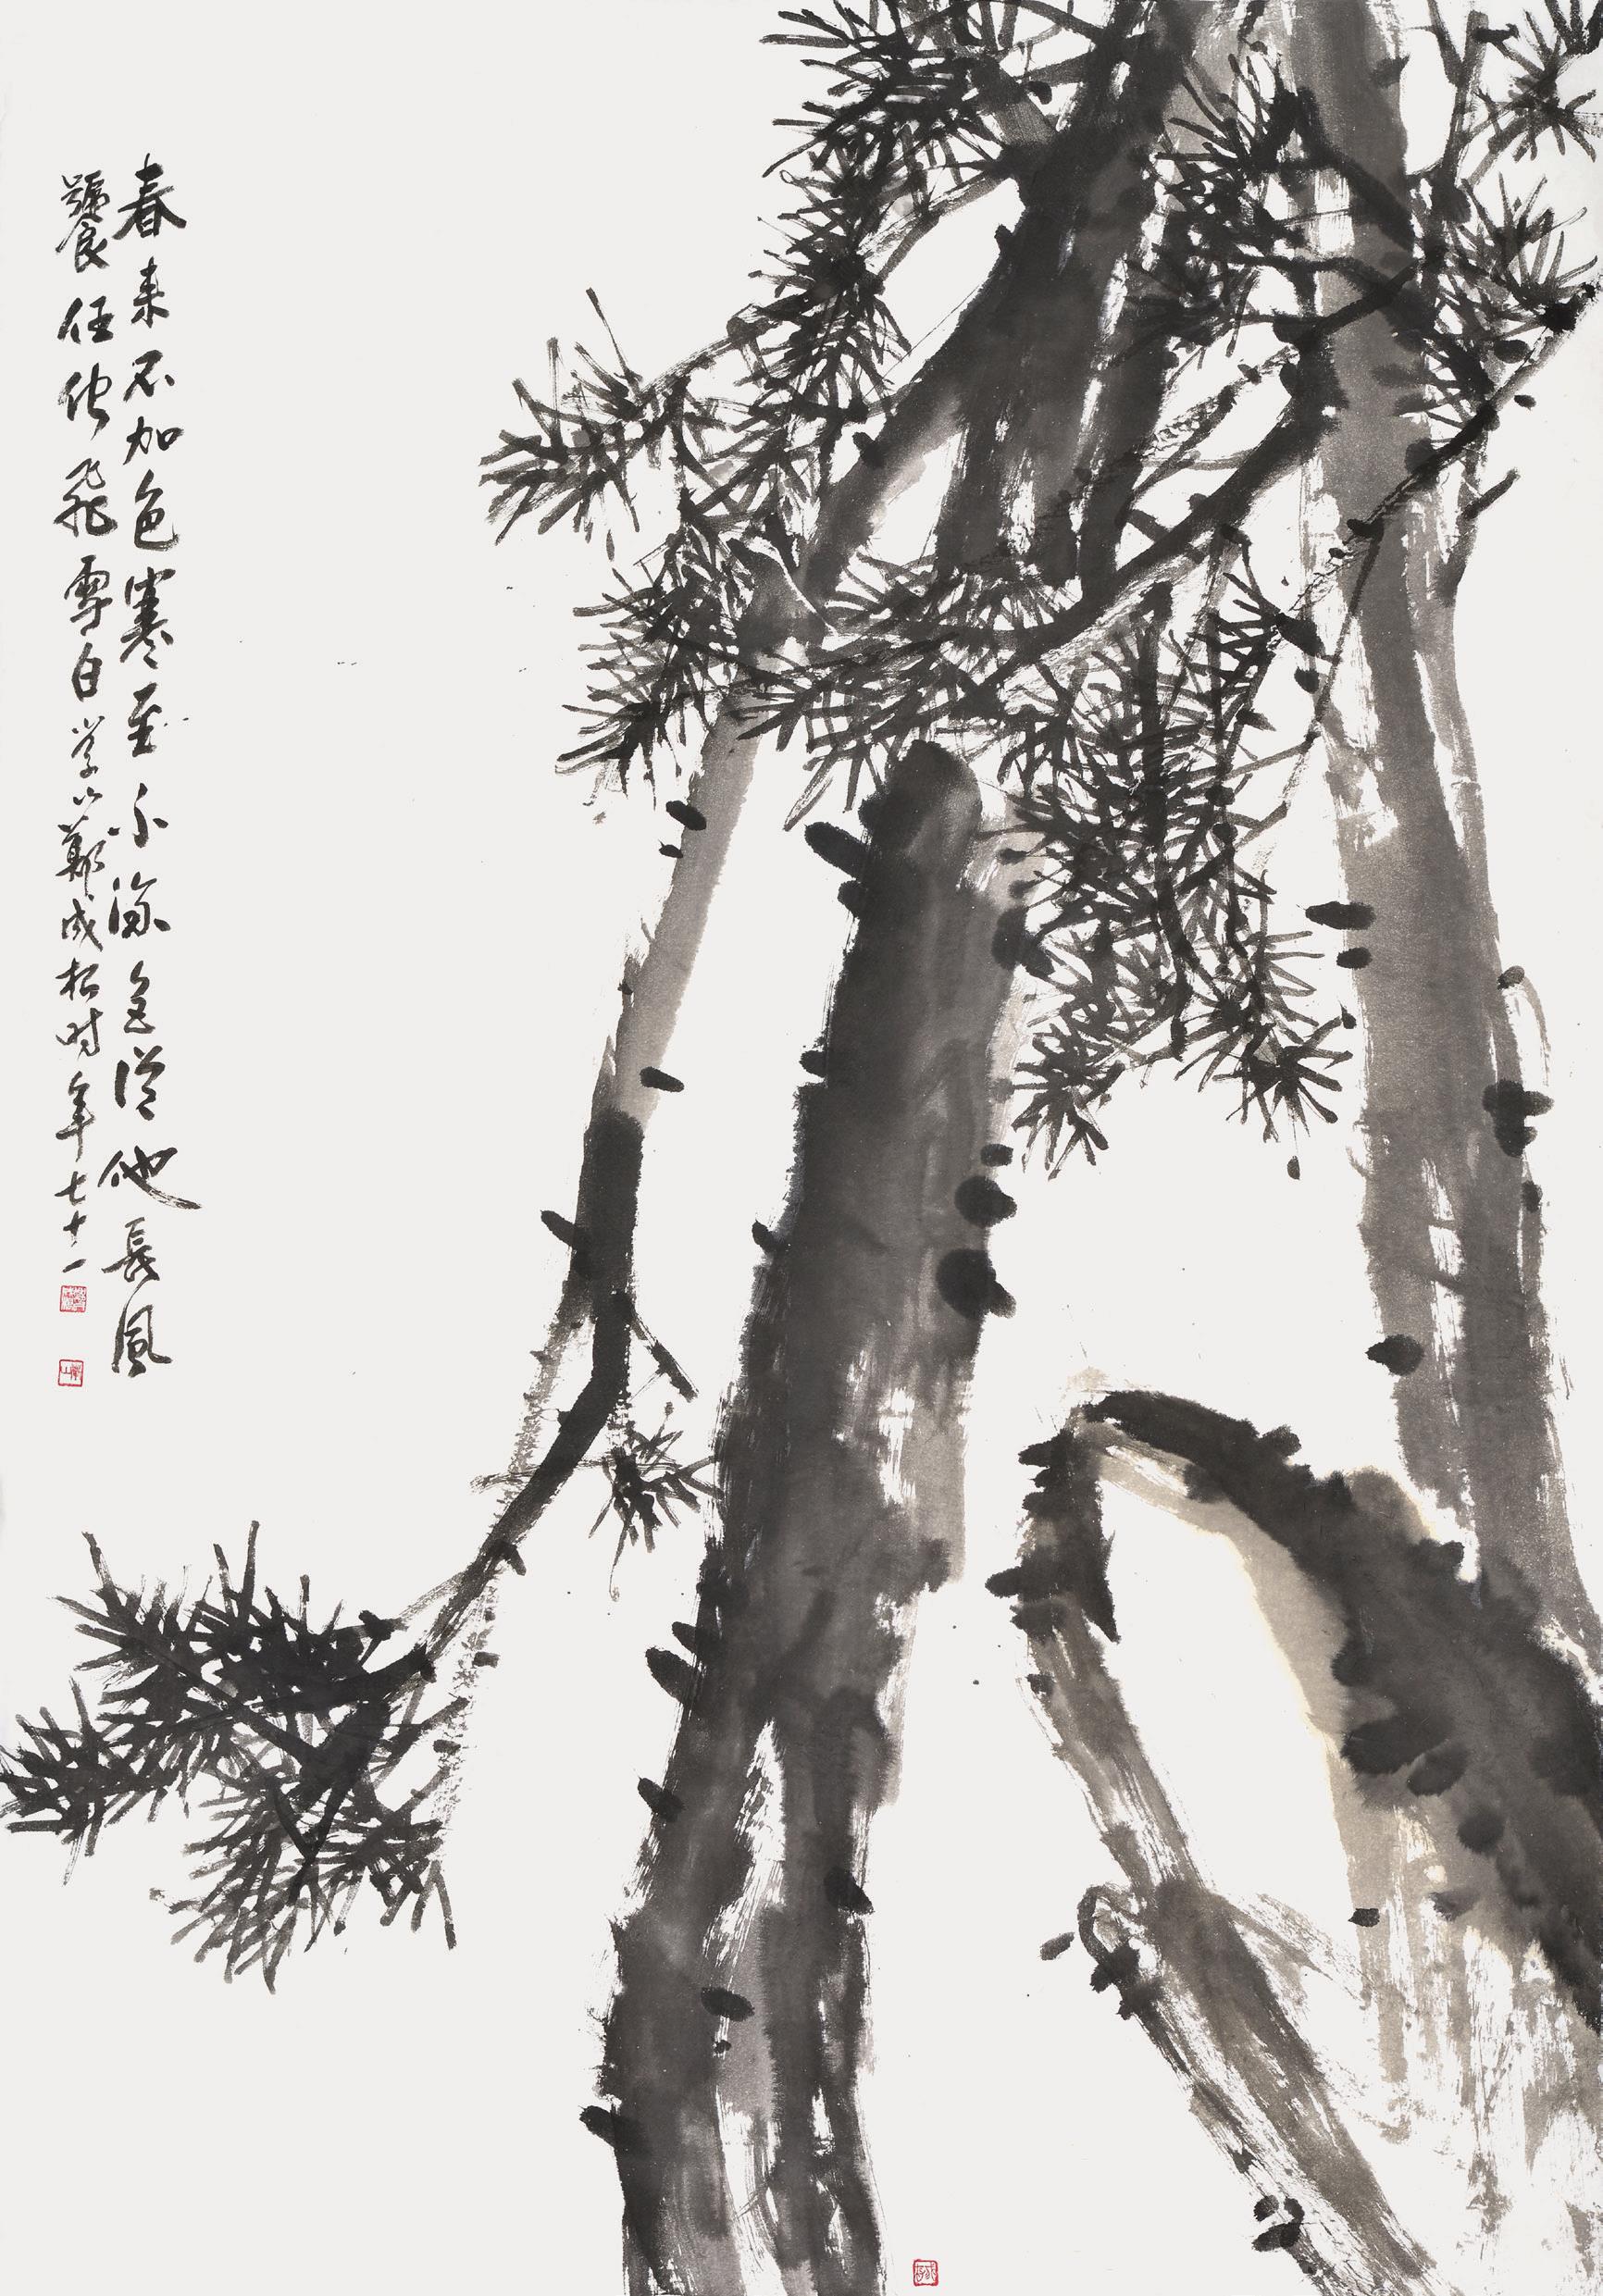 春来不加色寒至亦添色從他長風
饕任他飛雪白 鄭成松時年七十一